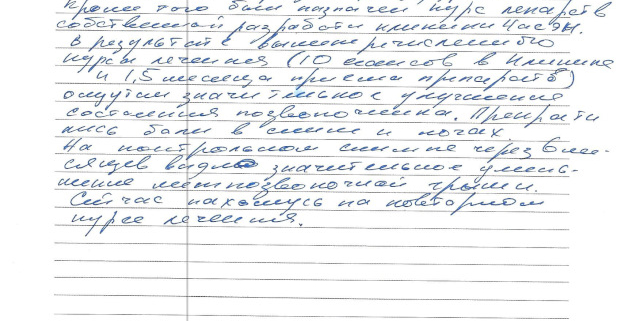 Кроме того был назначен курс лекарств
собственной разработки клиники
В результате вышеперечисленного
курса лечения (10 сеансов в клинике
и 1,5 месяца приема препаратов)
ощутил значительное улучшение
состояния позвоночника. Прекрати
лись боли в спине и ногах.
На контрольном снимке через 6 ме-
сяцев видно значительное умень-
шение межпозвоночной грыжи.
Сейчас нахожусь на повторном
курсе лечения.